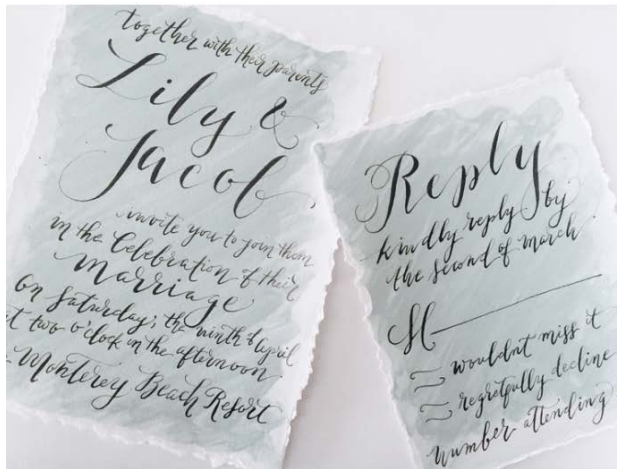 together with their parents
Lily &
Jacob
invite you to join them
in the Celebration of their
marriage
on Saturday, the ninth of april
at two o'clock in the afternoon
Monterey Beach Resort
Reply
kindly reply by
the second of march
M
wouldnt miss it
regretfully decline
number attending